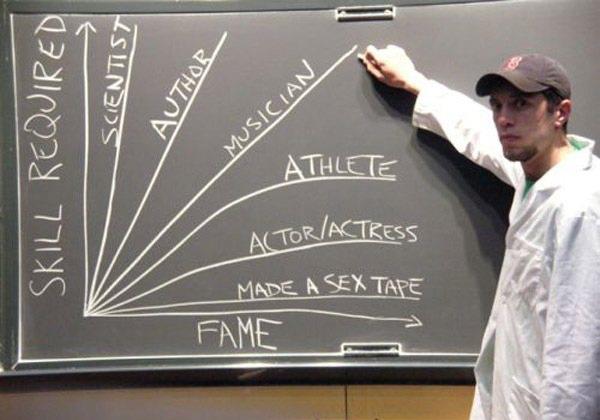 SKILL REQUIRED
SCIENTIST
AUTHOR
MUSICIAN
ATHLETE
ACTOR/ACTRESS
MADE A SEX TAPE
FAME
B